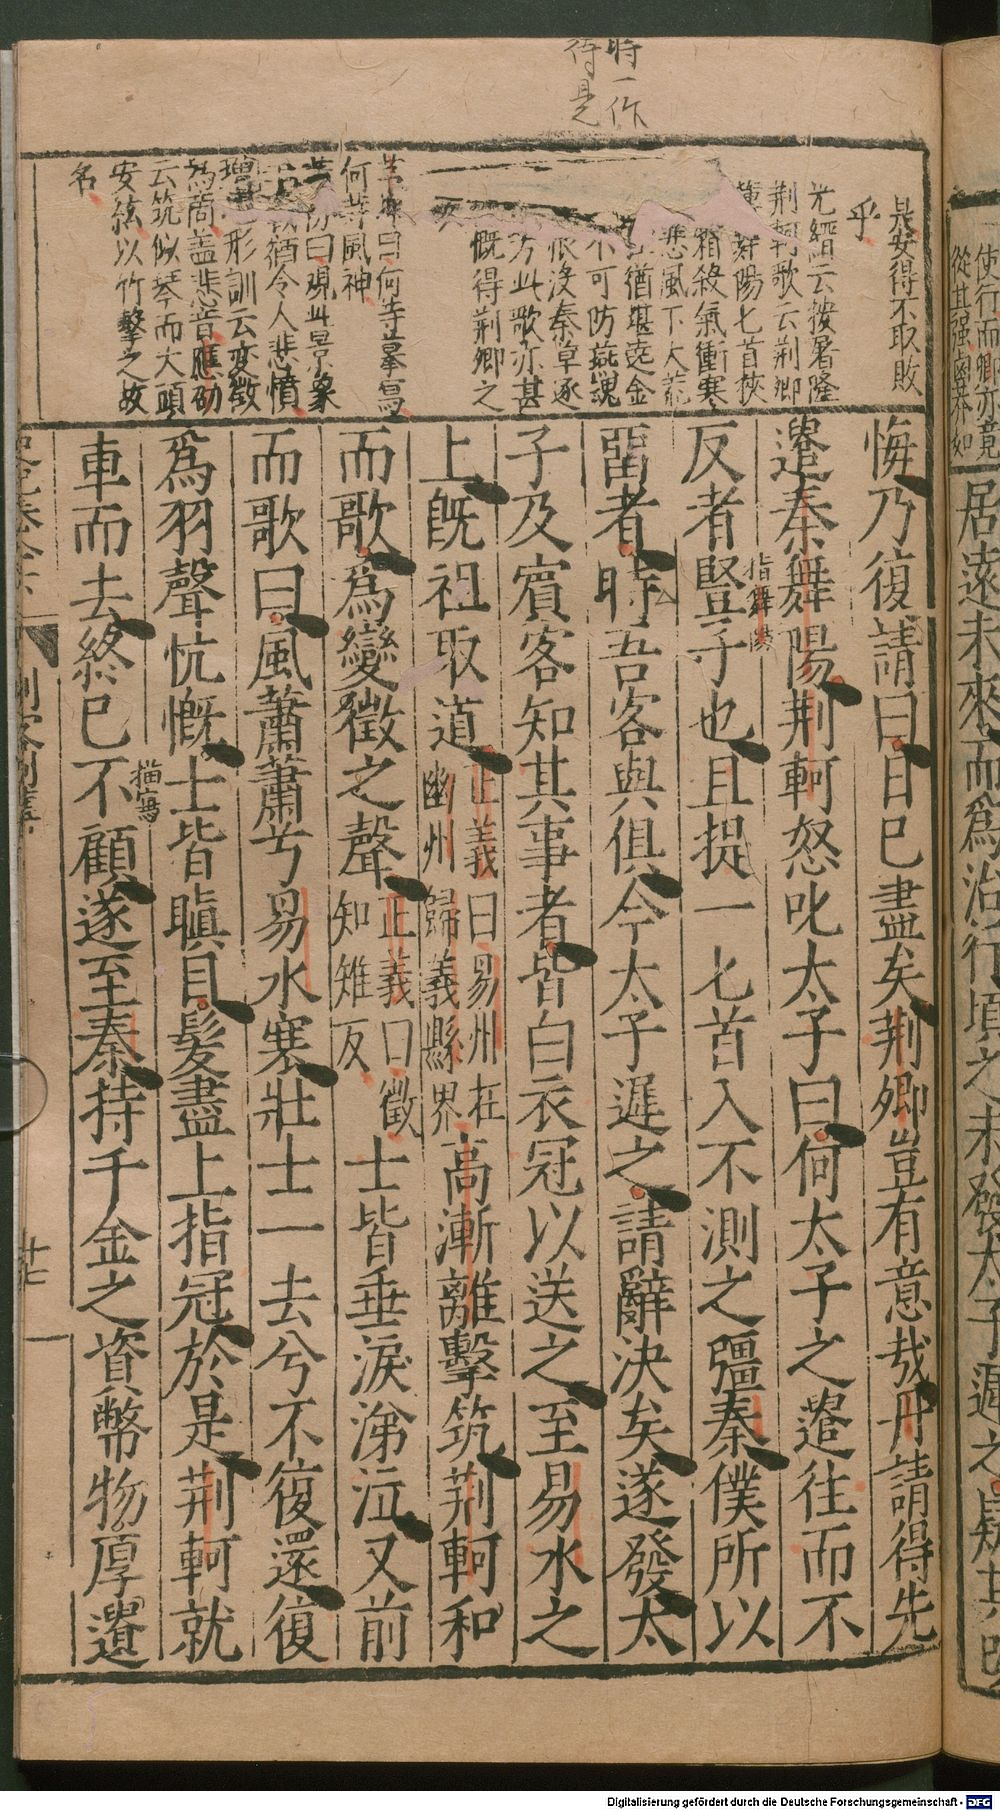 時一作
待是
是安得不取敗
乎
光縉云按署隆
荆軻歌云荆卿
舞陽匕首挾
霜殺氣衝寒
悲風下大荒
猶堪堯金
不可防燕魂
恨沒秦章逐
方此歌亦甚
慨得荆卿之
曰何等摹寫
何等風神
曰覌此景象
猶令人悲憤
形訓云变徵
為商盖悲音應劭
云筑似琴而大頭
安絃以竹擊之故
名
悔乃復請曰日已盡矣荆卿豈有意哉丹請得先
遣秦舞陽荆軻怒叱太子曰何太子之遣往而不
反者豎子也且提一匕首入不測之彊秦僕所以
指舞陽
留者時吾客與俱今太子遲之請辭決矣遂發太
子及賓客知其事者皆白衣冠以送之至易水之
上旣祖取道正義曰易州在幽州歸義縣界高漸離擊筑荆軻和
而歌爲變徵之聲正義曰徵知雉反士皆垂淚涕泣又前
而歌曰風蕭蕭兮易水寒壯士一去兮不復還復
爲羽聲忼慨士皆瞋目髮盡上指冠於是荆軻就
描寫
車而去終已不顧遂至秦持千金之資幣物厚遺
刺客列傳
廿七
使行而卿亦竟
從其强鹵莽如
居遠未來而爲治行頃之未發太子遲之疑其
Digitalisierung gefördert durch die Deutsche Forschungsgemeinschaft - DFG